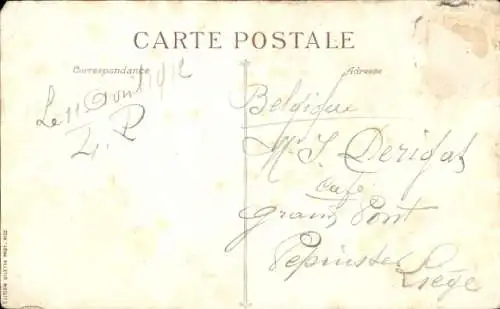 CARTE POSTALE
Correspondance
Adresse
Le 11 Août 1912
L. P
Belgique
Mr J. Derigat
Café
Grand Pont
Pepinster
Liège